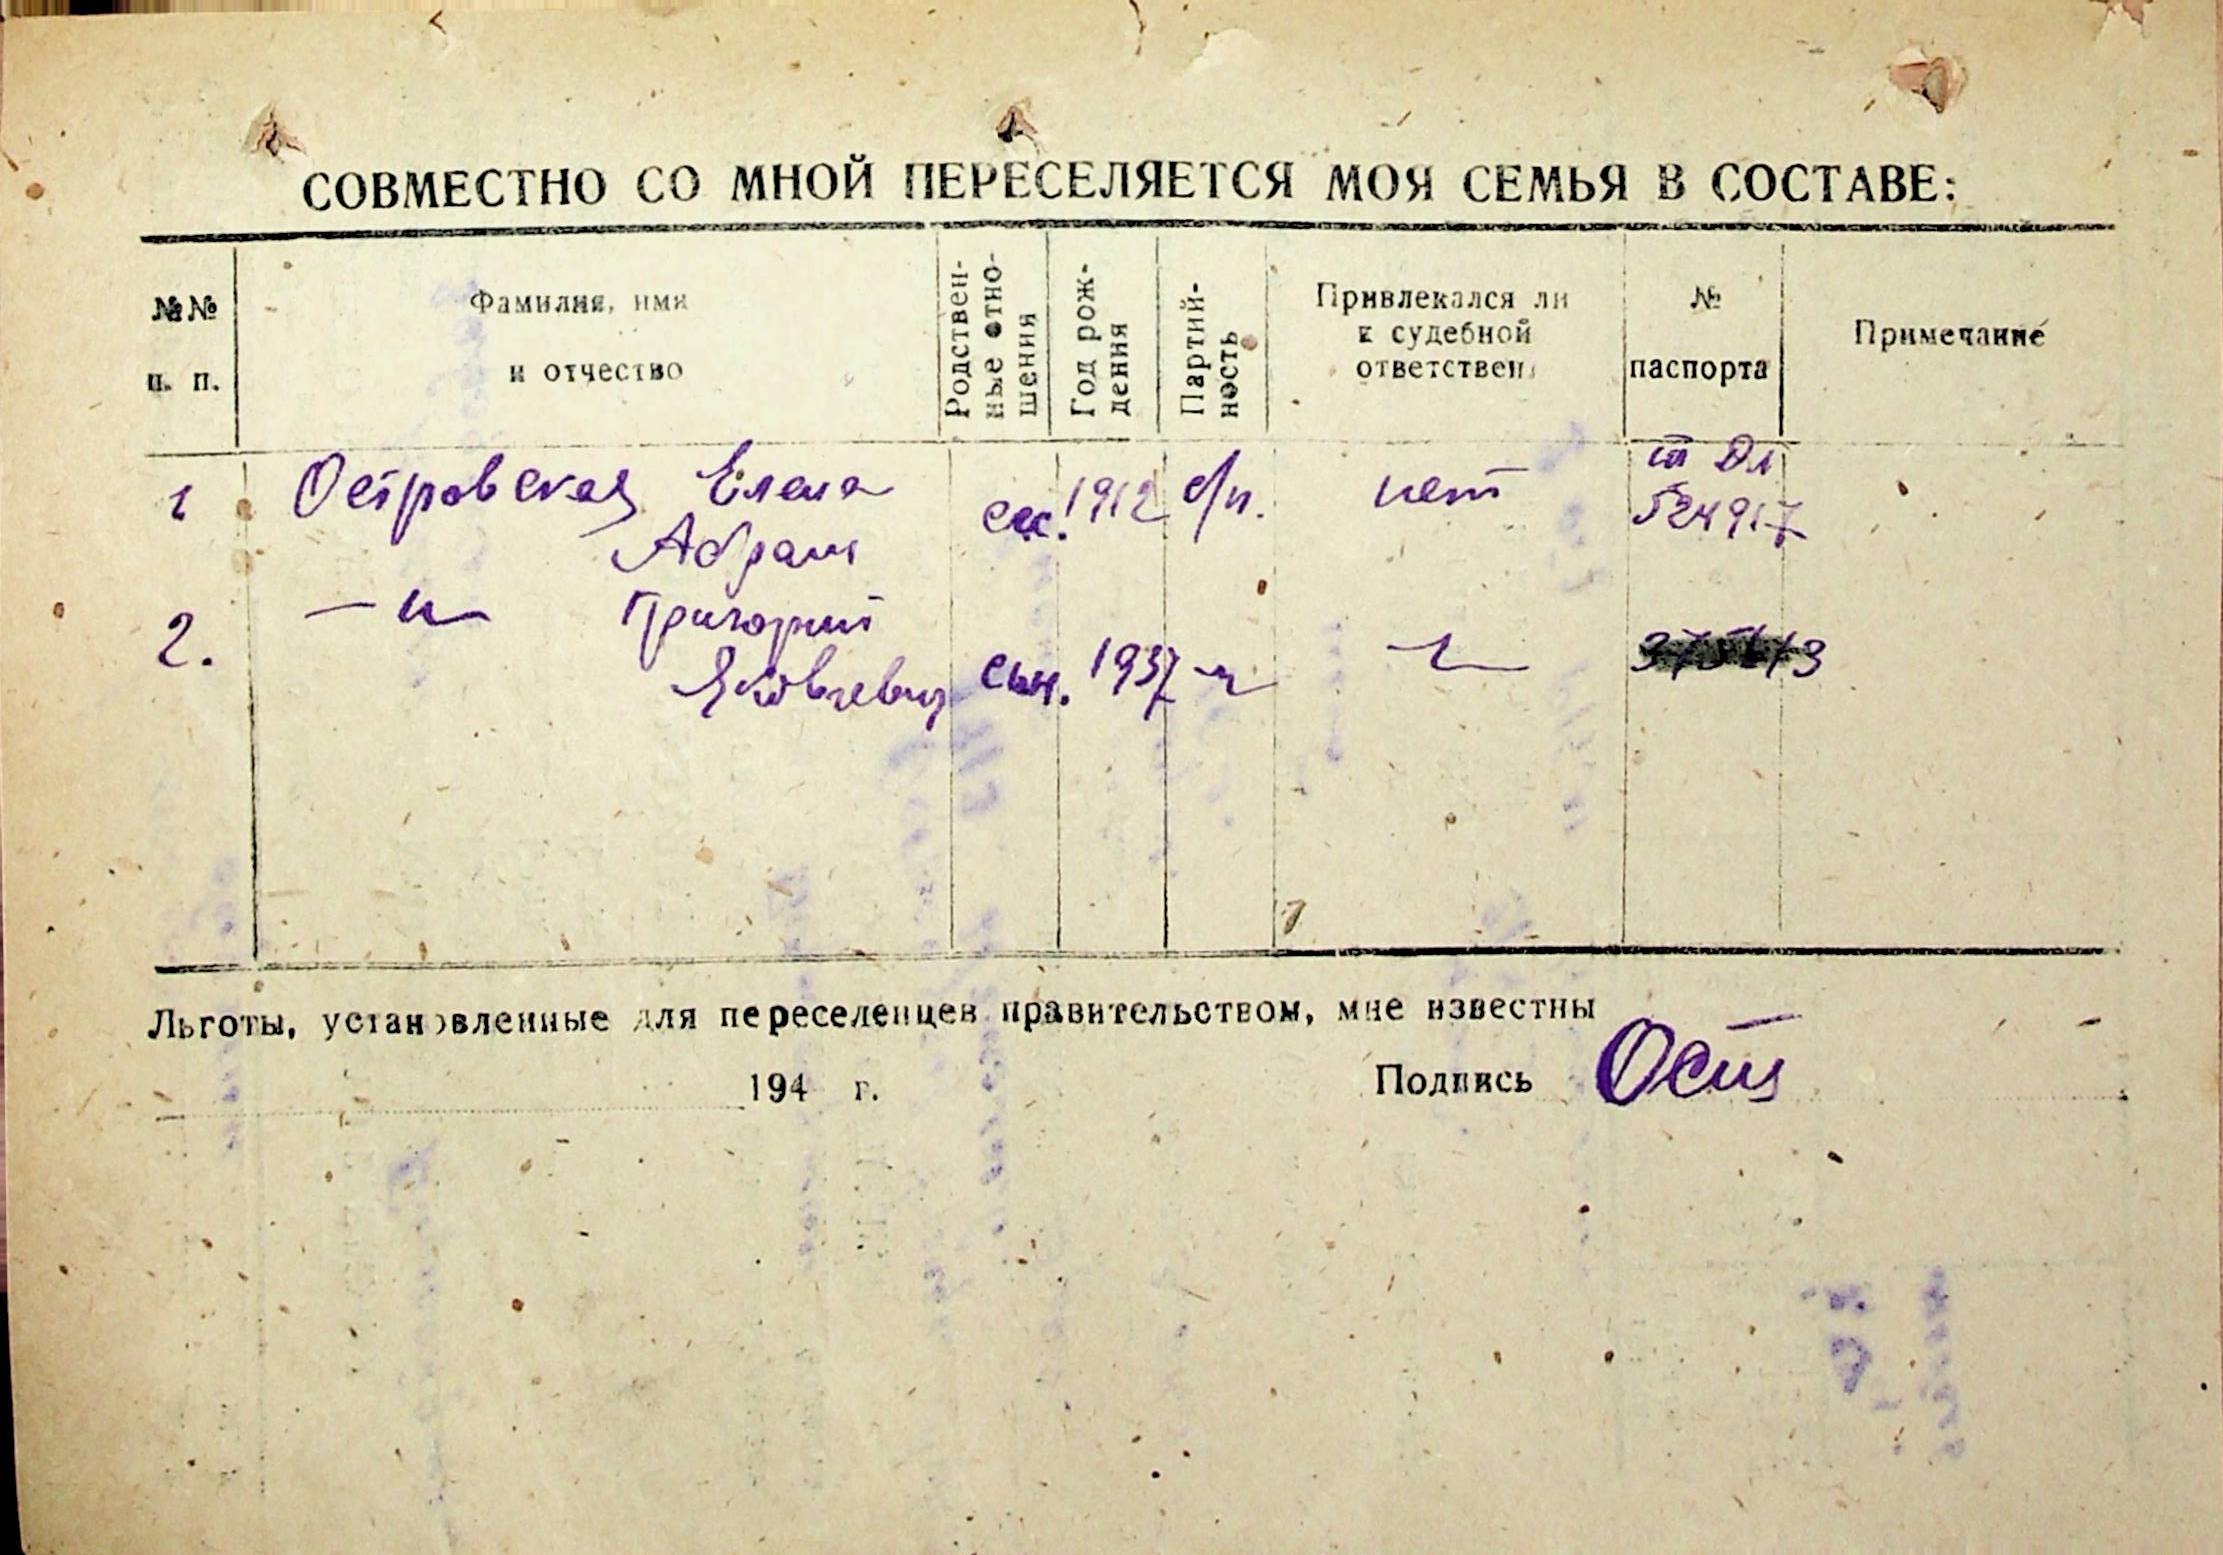 СОВМЕСТНО СО МНОЙ ПЕРЕСЕЛЯЕТСЯ МОЯ СЕМЬЯ В СОСТАВЕ:
№№ п. п.
Фамилия, имя и отчество
Родствен-
ные отно-
шения
Год рож-
дения
Партий-
ность
Привлекался ли
к судебной
ответствен.
№
паспорта
Примечание
1 Островская Елена
Абрам
1912 б/п. нет
524917
2. —"— Григорий
Яковлевич сын. 1937 —"— —"—
Льготы, установленные для переселенцев правительством, мне известны
194 г. Подпись